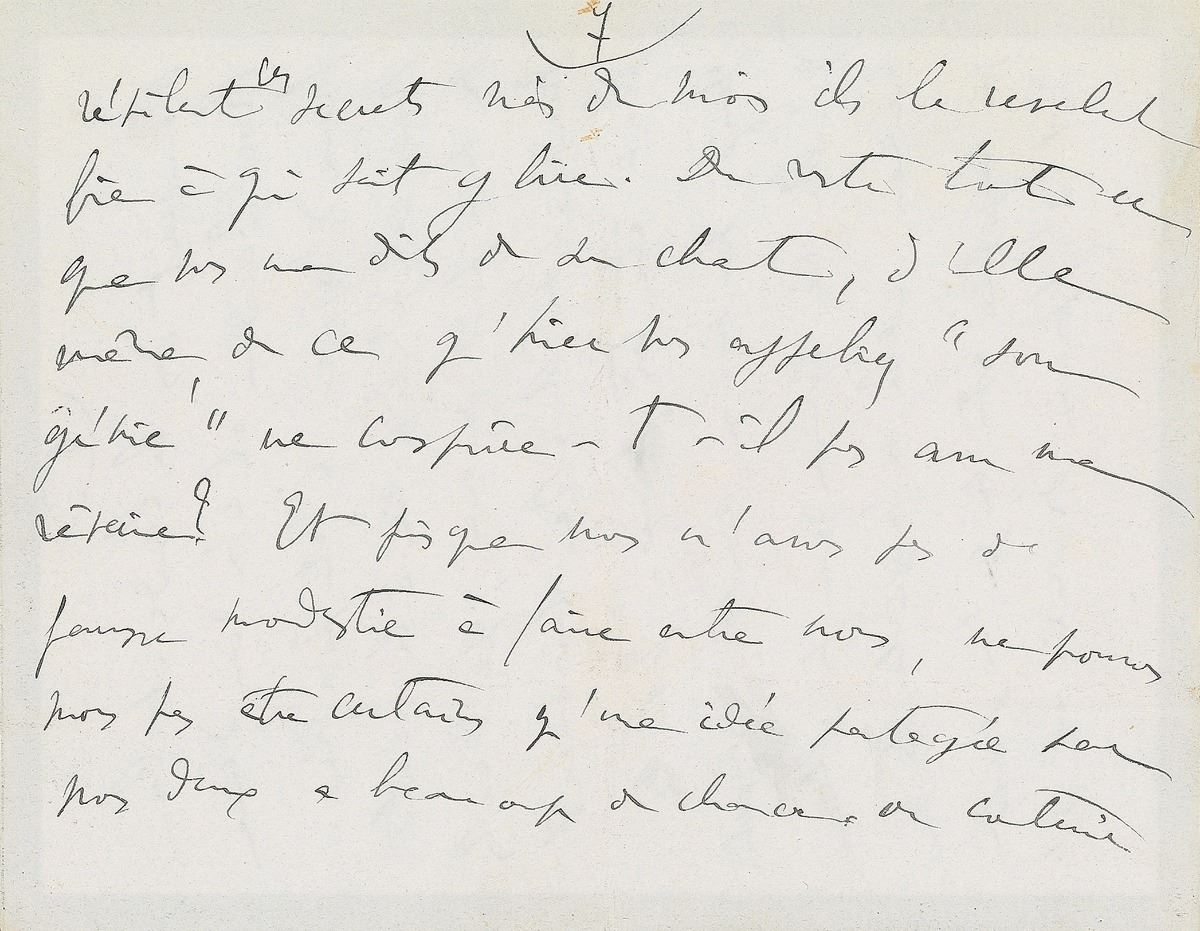 7
secrets du moins ils le
bien à qui sait y lire. Du reste tout ce
que vous me dites de son, d'elle
même de ce qu'hier vous appeliez "son
génie" ne conspire-t-il pas
? Et puisque nous n'avons pas de
fausse modestie à faire entre nous, ne pouvons
nous pas être certains qu'une idée partagée par
nos deux a beaucoup de chances de contenir